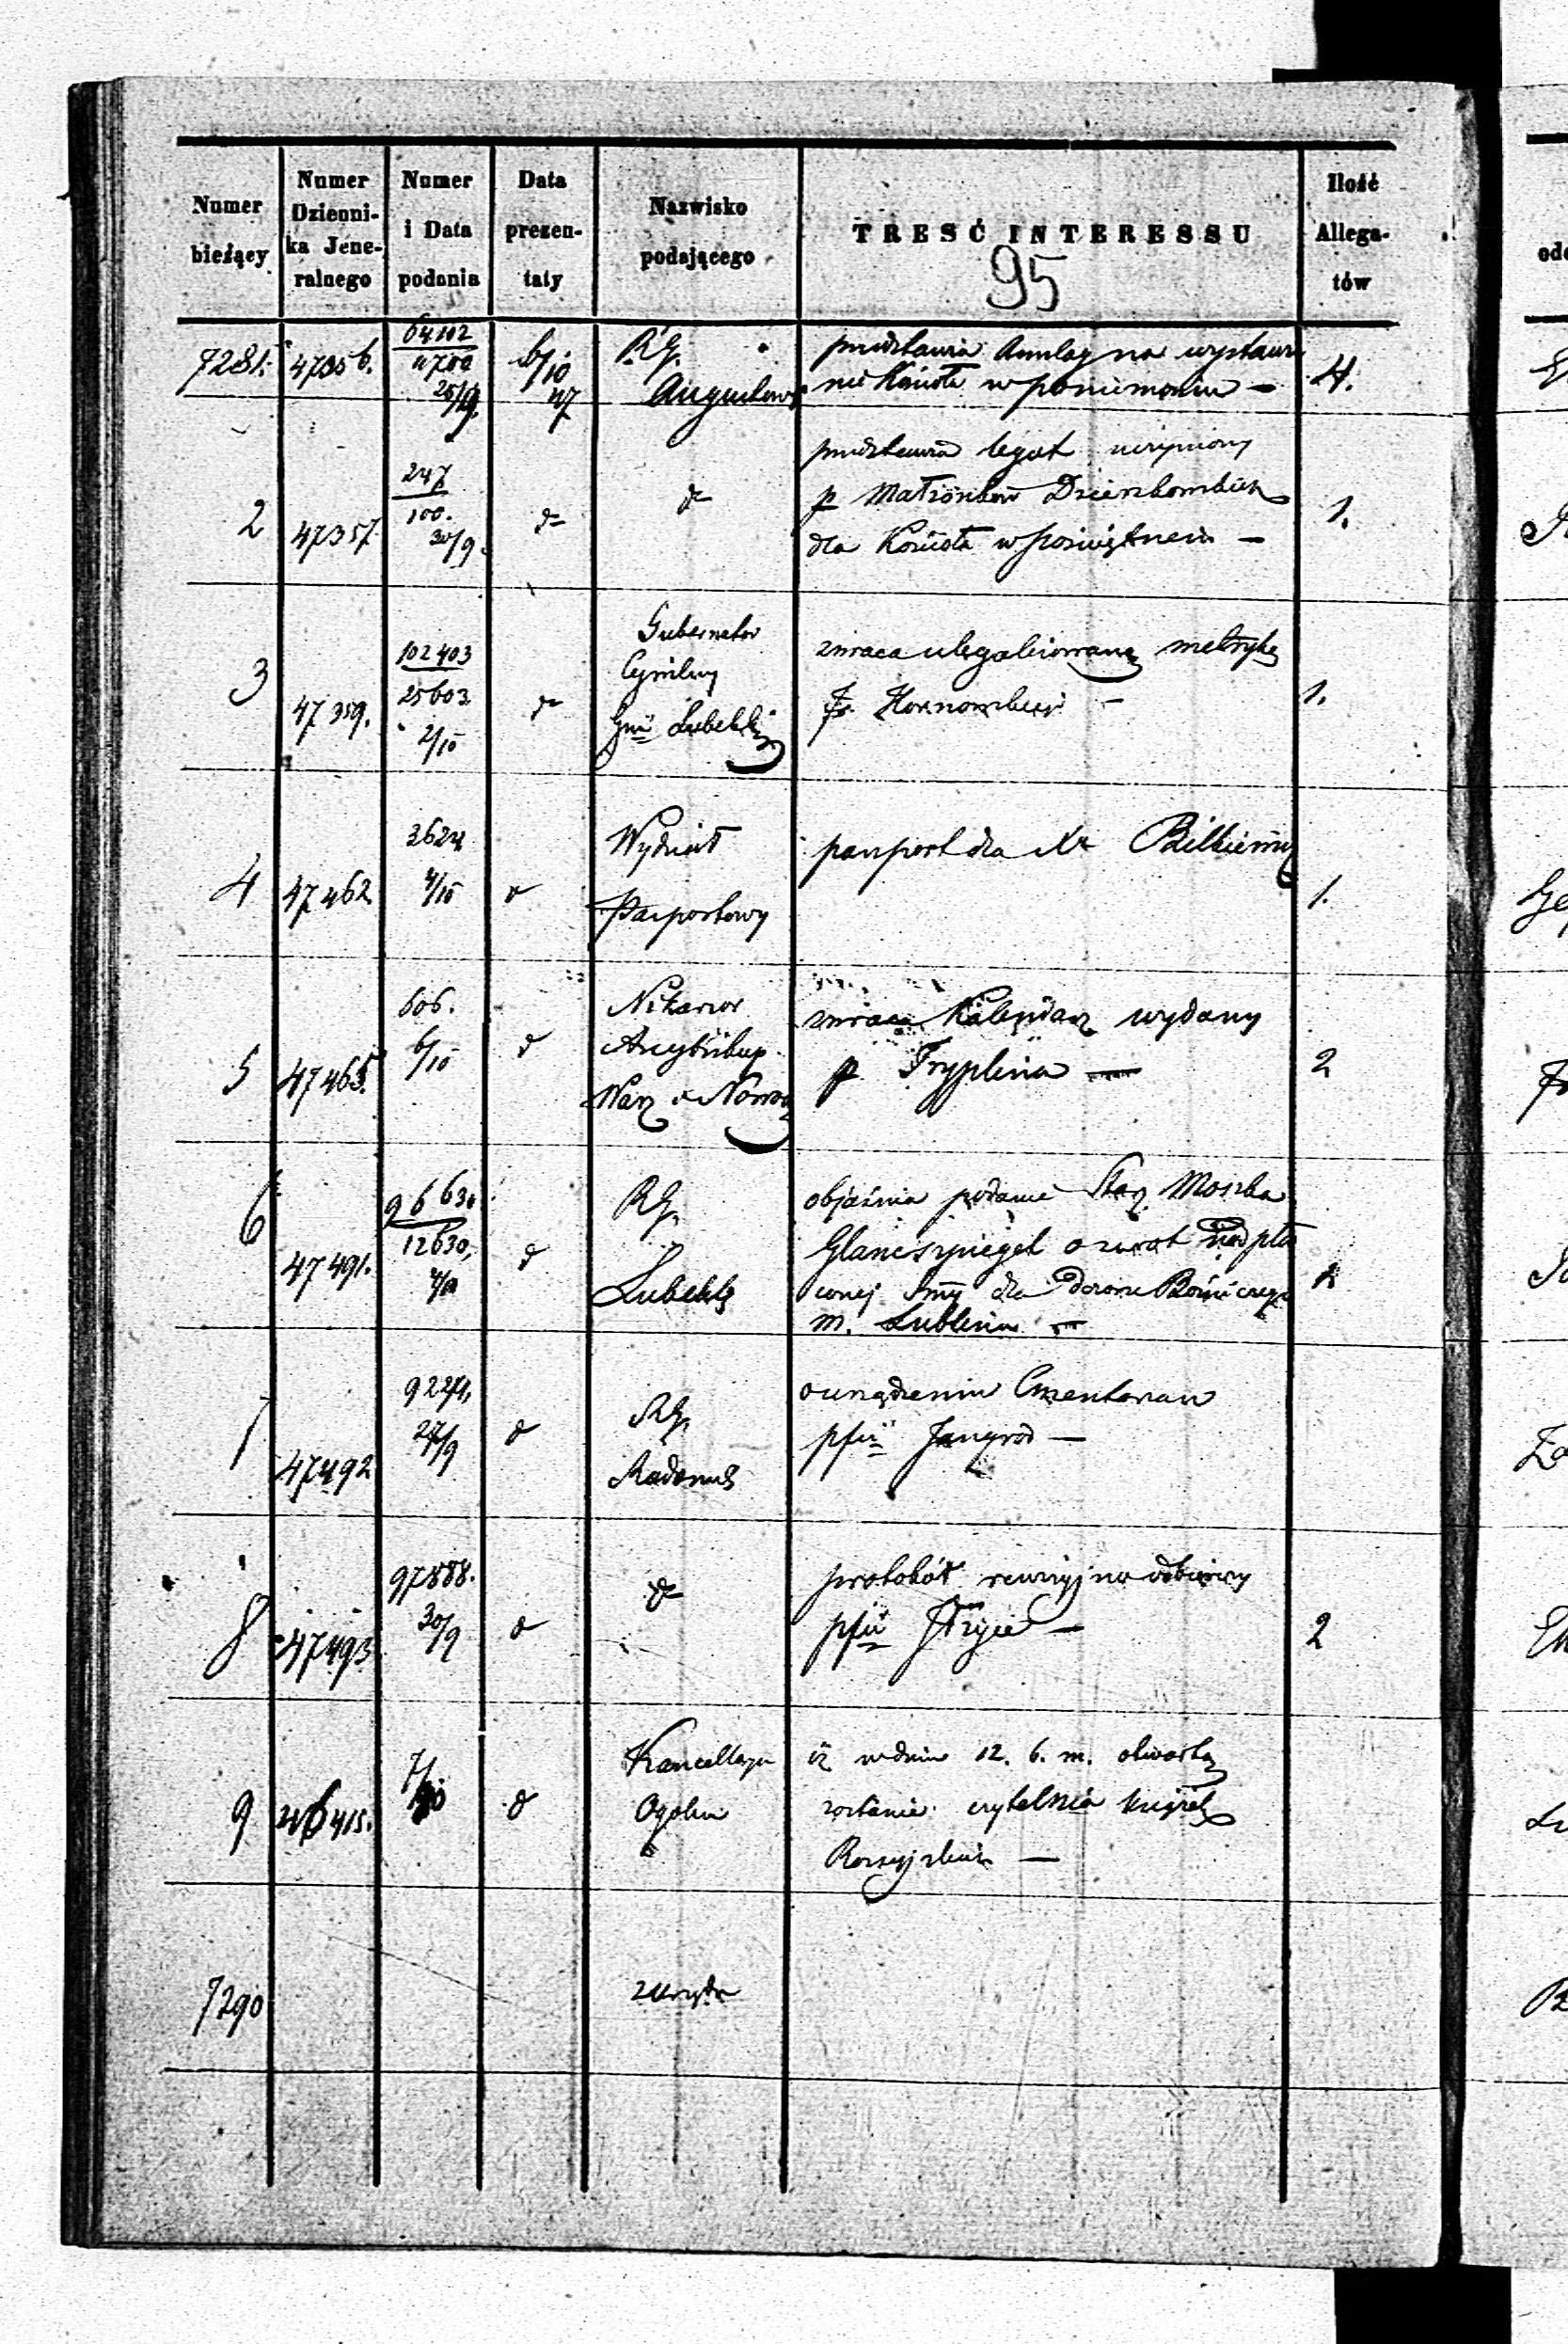 Numer bieżący
Numer Dzienni-ka Jene-ralnego
Numer i Data podania
Data prezen-taty
Nazwisko podającego
TRESĆ INTERESSU
Ilość Allega-tów
95
7281. 47356. 64102 25/9. 6/10 47 RG. Augustows przedstawia na wystawie
nie Kościoła w poniemoniu — 4.
2 47357 247 100. 30/9. do do
przedstawia legat uczyniony
p Małżonków
dla Kościoła w poświętnem — 1.
3 47359. 102403 25603 2/10 do
Gubernator
Cywilny
Gnii Lubelskiej
zwraca ulegalizowaną metrykę
Fr. — 1.
4 47462 3624 4/10 d
Wydział
Paszportowy
paszport dla Xa 1.
5 47465. 606. 6/10 d
Nikanor
Arcybiskup
Warz i Nowog
zwraca Kalendarz wydany
p Tryplina — 2
6 47491. 96630. 12630, d
RG.
Lubelski
objaśnia podanie Star. Moszka
Glancszpiegel o zwrot nadpła
conej Smy dla Dozoru Bóżniczego
m. Lublina — 1
7 47492 27/9 d
RG.
Radomski
o urządzeniu Cmentarza
pfii Jangrod —
8 47493 97888. 30/9 d do
protokół rewizyjno odbiorczy
pfii — 2
9 7/10 d
Kancellarya
Ogolna
iż w dniu 12. b. m. otwartą
zostanie czytelnia książek
Rossyjskich —
7290
z Urzędu